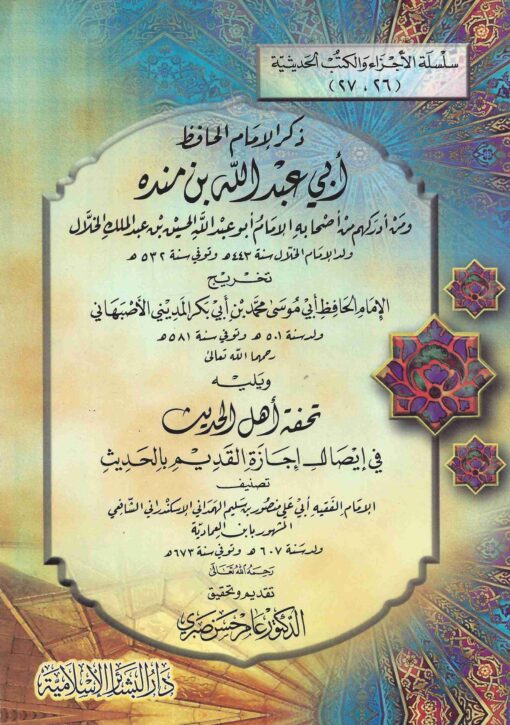 سلسلة الأجزاء والكتب الحديثية
(٢٦، ٢٧)
ذكر الإمام الحافظ
أبي عبد الله بن منده
ومن أدركهم من أصحابه الإمام أبو عبد الله الحسين بن عبد الملك الخلال
ولد الإمام الخلال سنة ٤٤٣ هـ وتوفي سنة ٥٣٢ هـ
تخريج
الإمام الحافظ أبي موسى محمد بن أبي بكر المديني الأصبهاني
ولد سنة ٥٠١ هـ وتوفي سنة ٥٨١ هـ
رحمهما الله تعالى
ويليه
تحفة أهل الحديث
في إيصال إجازة القديم بالحديث
تصنيف
الإمام الفقيه أبي علي منصور بن سليم الهمداني الإسكندراني الشافعي
المشهور بابن العمادية
ولد سنة ٦٠٧ هـ وتوفي سنة ٦٧٣ هـ
رحمه الله تعالى
تقديم وتحقيق
الدكتور عامر حسن صبري
دار البشائر الإسلامية